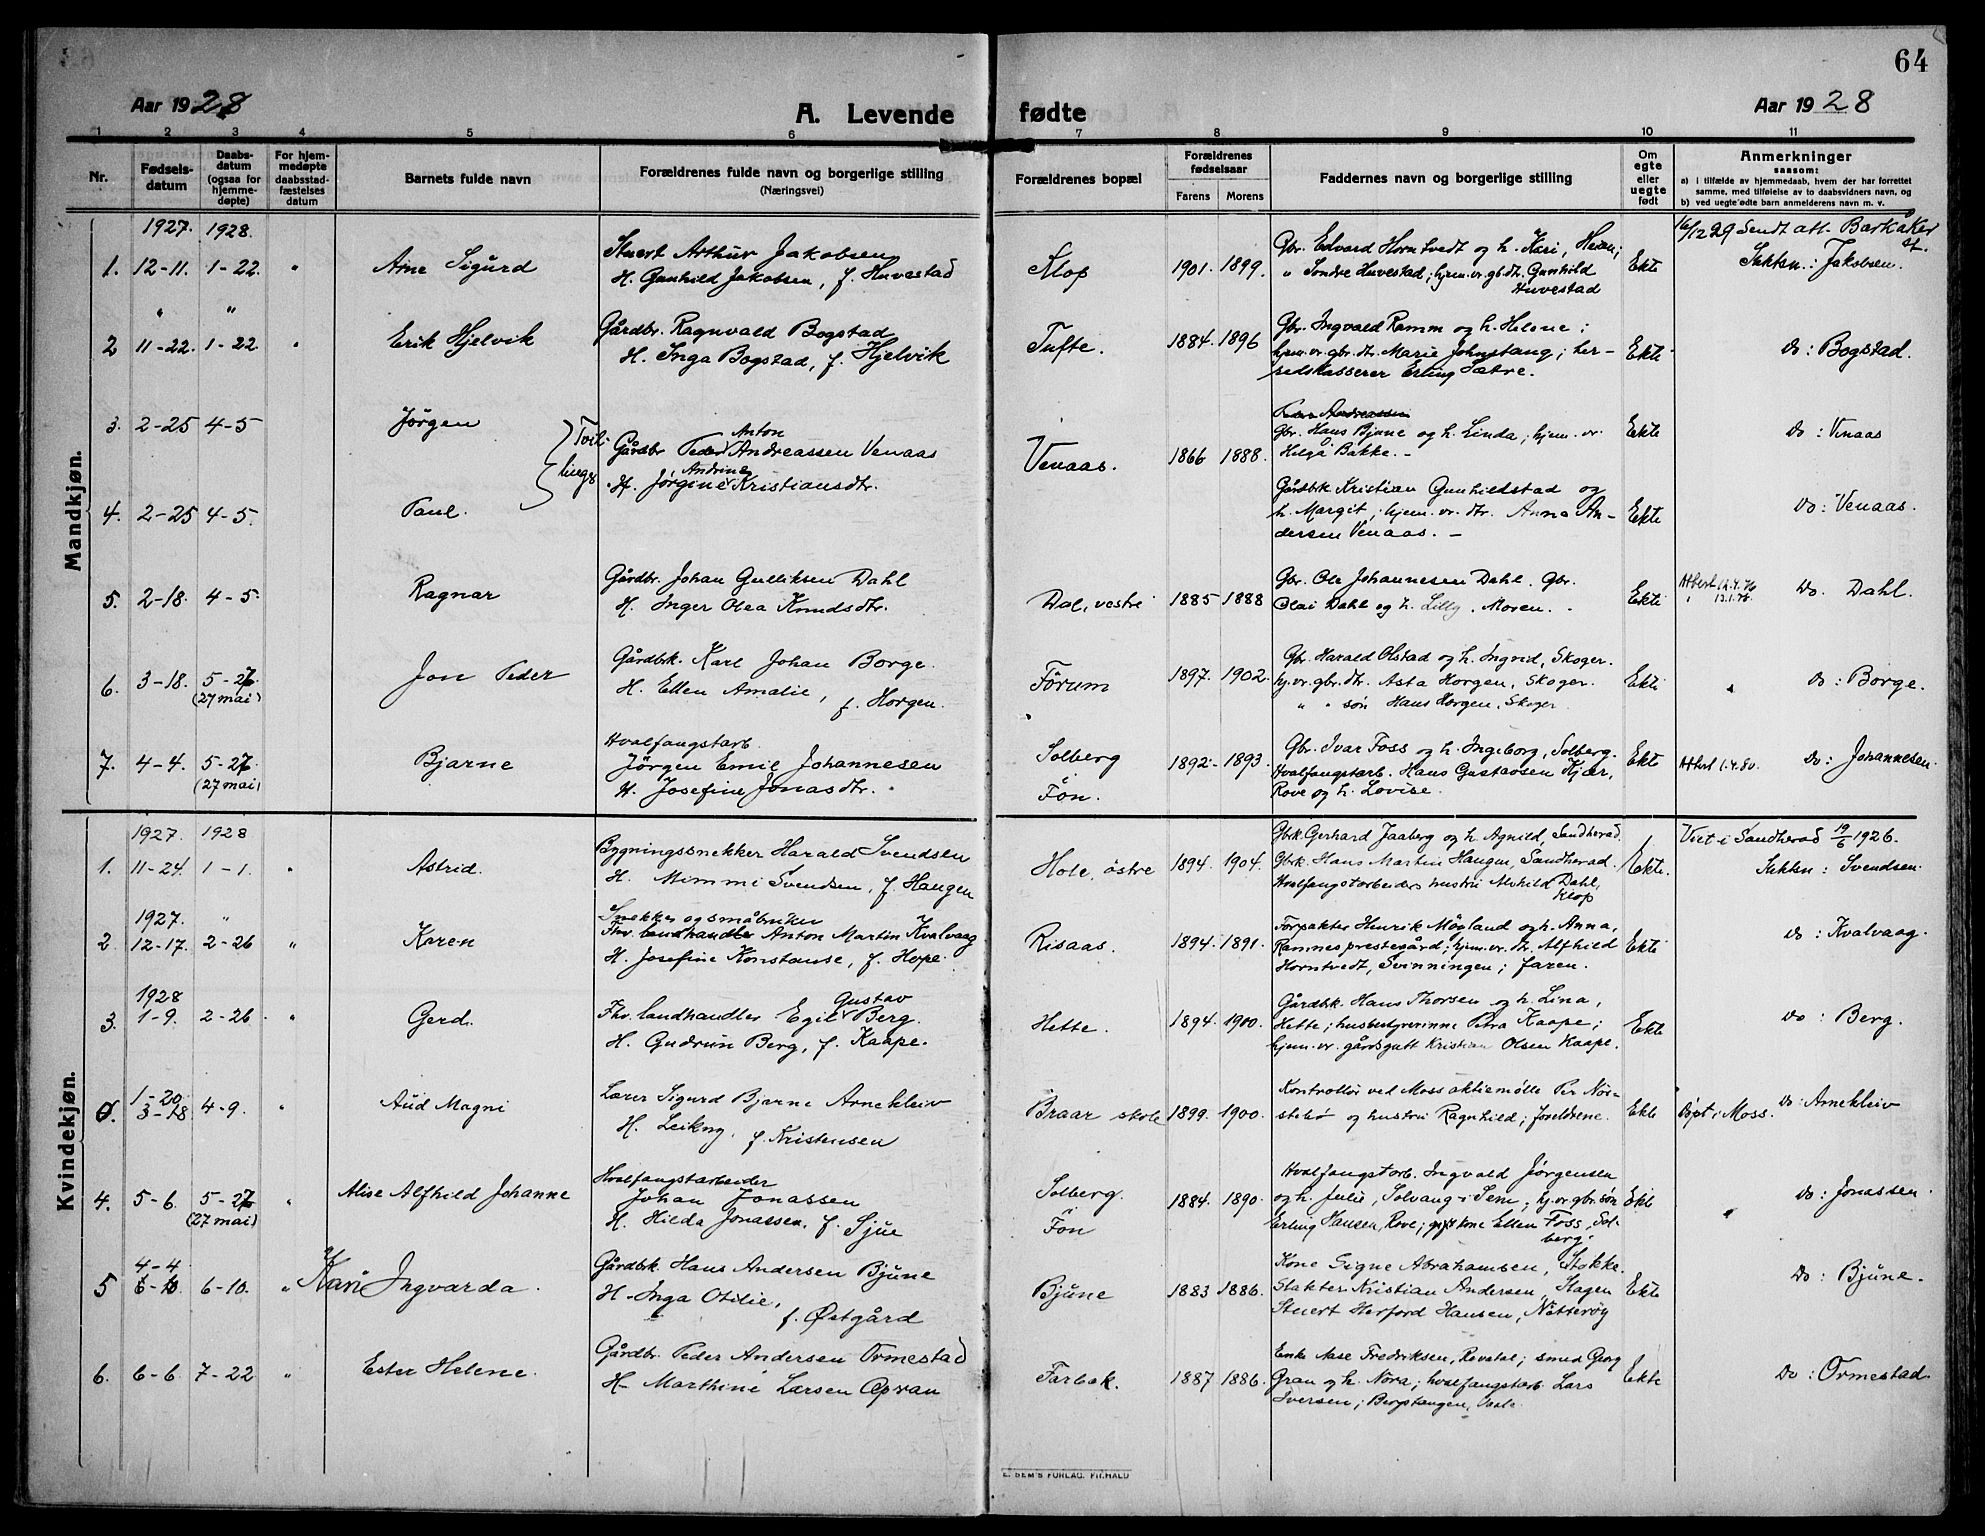 64
Aar 1928
A. Levende fødte
Aar 1928
1 2 3 4 5 6 7 8 9 10 11
Nr.
Fødsels-
datum
Daabs-
datum
(ogsaa for
hjemme-
døpte)
For hjem-
medøpte
daabsstad-
fæstelses
datum
Barnets fulde navn
Forældrenes fulde navn og borgerlige stilling
(Næringsvei)
Forældrenes bopæl
Forældrenes
fødselsaar
Farens Morens
Faddernes navn og borgerlige stilling
Om
egte
eller
uegte
født
Anmerkninger
saasom:
a) i tilfælde av hjemmedaab, hvem der har forrettet
samme, med tilføielse av to daabsvidners navn, og
b) ved uegte fødte barn anmelderens navn m. v.
Mandkjøn.
1927. 1928.
1. 12-11. 1-22. " Arne Sigurd
Stuert Arthur Jakobsen
H. Gunhild Jakobsen, f. Huvestad
Klop 1901. 1899.
Gbr. Edvard Horntvedt og h. Kari, Hexen;
" Sondre Huvestad; hjem. vr. gb. dtr. Gunhild
Huvestad
Ekte
16/12 29 Sendt att. Barkåker
st.
Sekten: Jakobsen.
" "
2 11-22. 1-22. " Erik Hjelvik
Gårdbr. Ragnvald Bogstad
H. Inga Bogstad, f. Hjelvik
Tufte. 1884. 1896
Gbr. Ingvald Ramm og h. Helene;
hjem. vr. gbr. dtr. Marie Johnstang; her-
redskasserer Erling Sætre.
Ekte
Do: Bogstad.
3. 2-25 4-5 Jørgen
Tvil-
linger
Gårdbr. Peder Anton Andreassen Venaas
H. Jørgine Andrine Kristiansdtr.
Venaas. 1866 1888.
Gbr. Hans Bjune og h. Linda; hjem. vr.
Helga Bakke. -
Ekte
Do: Venaas
4. 2-25 4-5. Paul.
Gårdbrk Kristian Gunhildstad og
h. Margit; hjem. vr. dtr. Anna An-
dersen Venaas. -
Ekte
Do: Venaas.
5. 2-18. 4-5. Ragnar
Gårdbr. Johan Gulliksen Dahl
H. Inger Olea Knudsdtr.
Dal, vestre 1885 1888
Gbr. Ole Johannesen Dahl. Gbr.
Olai Dahl og h. Lilly. Moren.
Ekte
Attest 12.4.76
" 13.1.78.
Do. Dahl.
6. 3-18. 5-27
(27 mai)
Jon Peder
Gårdbrk. Karl Johan Borge.
H. Ellen Amalie,
f. Horgen.
Förum 1897. 1902.
Gbr. Harald Olstad og h. Ingrid, Skoger.
hj. vr. gbr. dtr. Asta Horgen, Skoger.
" " søn Hans Horgen, Skoger
Ekte
Do: Borge.
7. 4-4. 5-27
(27 mai)
Bjarne
Hvalfangstarb.
Jørgen Emil Johannesen
H. Josefine Jonasdtr.
Solberg
Fön.
1892- 1893.
Gbr. Ivar Foss og h. Ingeborg, Solberg.
Hvalfangstarb. Hans Gustavsen Kjær,
Rove og h. Lovise.
Ekte
Attest 1.4.80.
Do: Johannesen.
Kvindekjøn.
1927. 1928
1. 11-24. 1-1. " Astrid.
Bygningssnekker Harald Svendsen
H. Mimmi Svendsen, f. Haugen
Hole, östre 1894. 1904.
Gbrk. Gerhard Jaaberg og h. Agnild, Sandherad.
Gbrk. Hans Martin Haugen, Sandherad.
Hvalfangstarbeiders hustru Alvhild Dahl,
Klop
Ekte.
Viet i Sandherad 19/6 1926.
Sekten: Svendsen.
1927. "
2. 12-17. 2-26 " Karen
Snekker og småbruker
Fhv. landhandler Anton Martin Kvalvaag
H. Josefine Konstanse, f. Hope.
Risaas. 1894. 1891.
Forpakter Henrik Mögland og h. Anna,
Ramnes prestegård; hjem. vr. dtr. Alfhild
Horntvedt, Svinningen; faren.
Ekte
Do: Kvalvaag.
1928
3. 1-9. 2-26. " Gerd.
Fhv. landhandler Egil Gustav Berg.
H. Gudrun Berg, f. Kaape.
Hette. 1894. 1900.
Gårdbk. Hans Thorsen og h. Lina,
Hette; husbestyrerinne Petra Kaape;
hjem. vr. gårdsgutt Kristian Olsen Kaape.
Ekte
Do: Berg.
0. 1-20.
3-18 4-9. " Aud Magni
Lærer Sigurd Bjarne Arnekleiv
H. Leikny, f. Kristensen
Braar skole 1899. 1900.
Kontrollør ved Moss aktiemølle Per Nor-
stebø og hustru Ragnhild; foreldrene.
Ekte
Døpt i Moss.
Do: Arnekleiv
4. 5-6. 5-27
(27 mai)
" Alise Alfhild Johanne
Hvalfangstarbeider
Johan Jonassen
H. Hilda Jonassen, f. Sjue
Solberg.
Fön
1884. 1890.
Hvalfangstarb. Ingvald Jørgensen
og h. Julie, Solvang i Sem; hj. vr. gbr. søn
Erling Hansen, Rove; gift kone Ellen Foss, Sol-
berg.
Ekte
Do: Jonassen.
5 4-4
6-10 6-10. " Kari Ingvarda.
Gårdbk. Hans Andersen Bjune
H. Inga Otilie,
f. Østgård
Bjune 1883 1886.
Kone Signe Abrahamsen, Stokke.
Slakter Kristian Andersen, Hagen
Stuert Herford Hansen, Nøtterøy
Ekte
Do: Bjune.
6. 6-6. 7-22 " Ester Helene.
Gårdbr. Peder Andersen Ormestad
H. Marthine Larsen
Farbak. 1887 1886.
Enke Aase Fredriksen, Revetal; smed Georg
Gran og h. Nora; hvalfangstarb. Lars
Iversen; Bergstangen,
Ekte
Do: Ormestad.
E. SEM'S FORLAG. FR.HALD